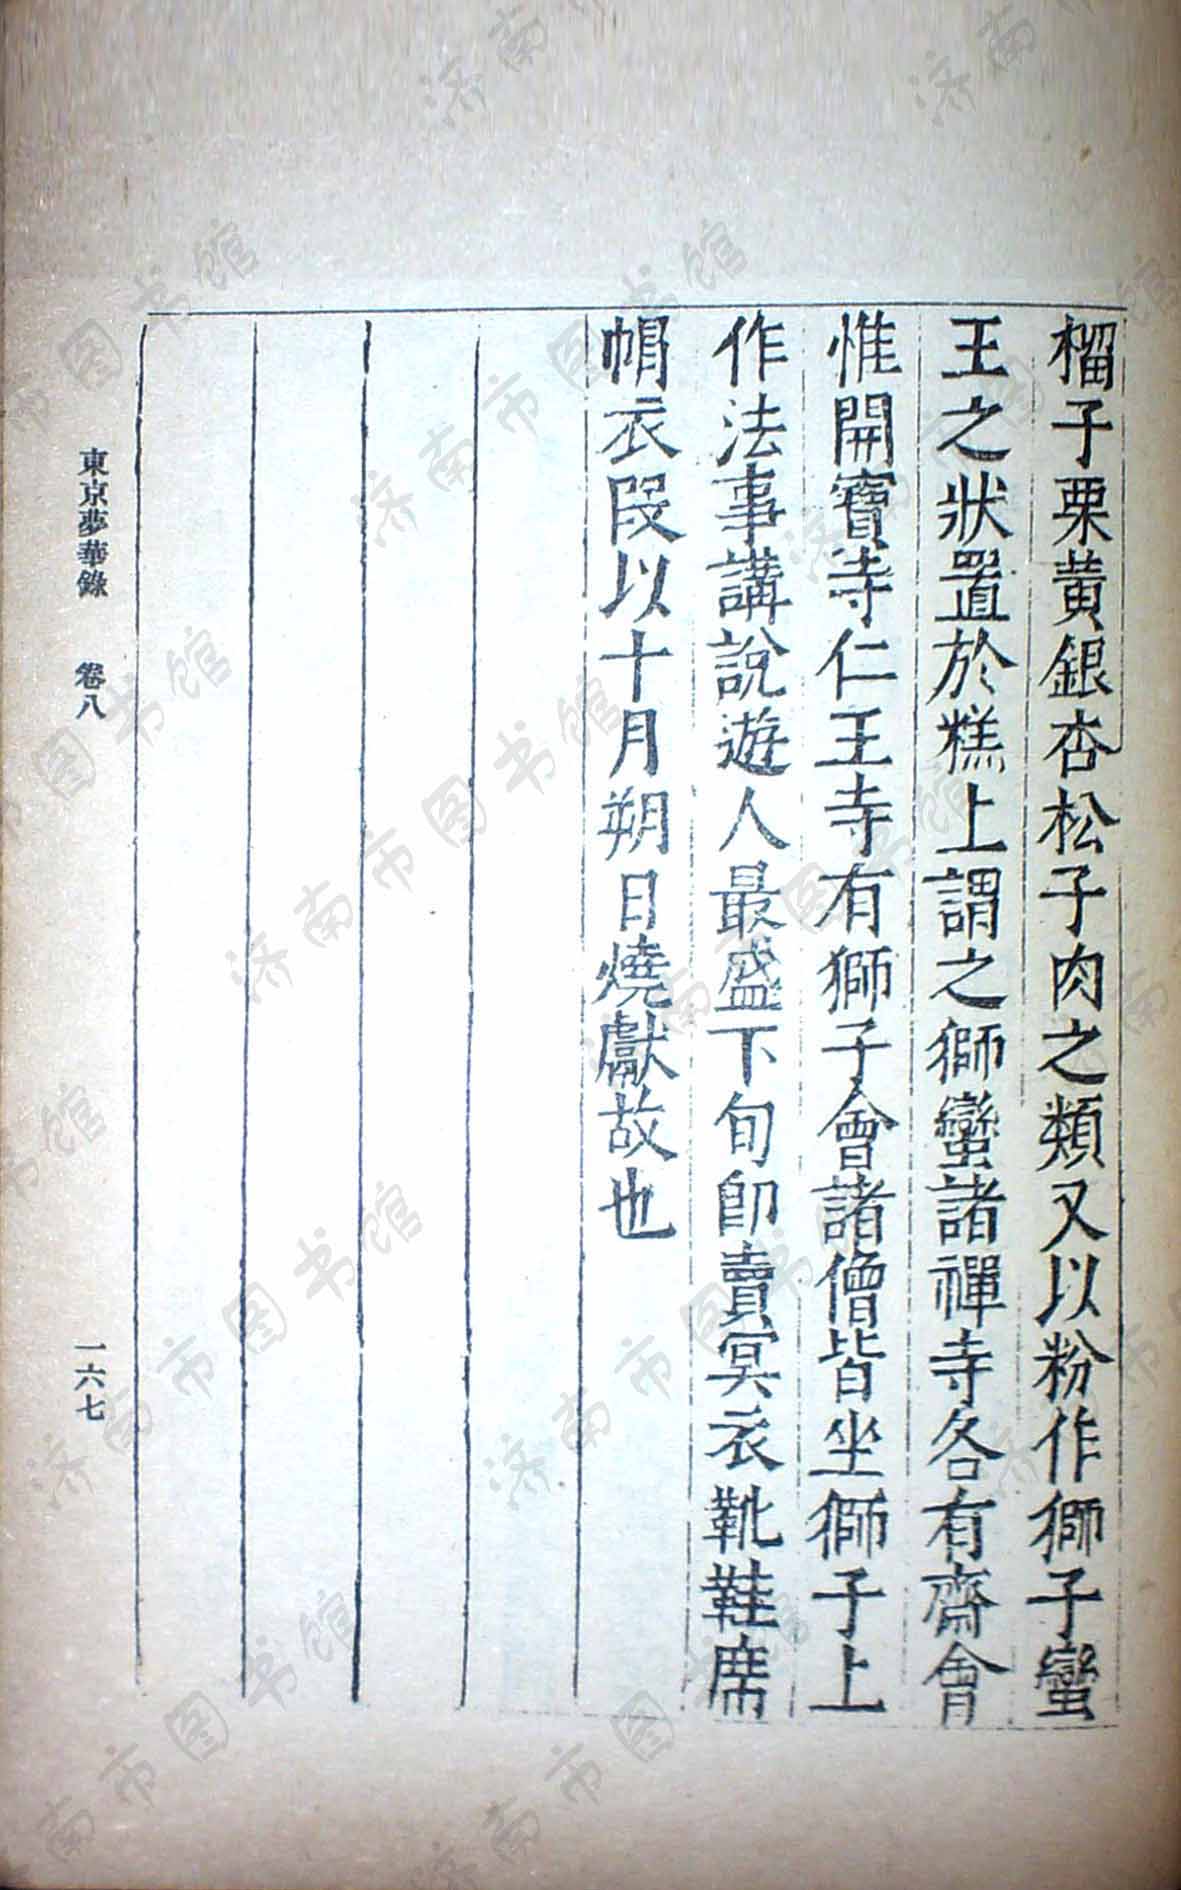 榴子栗黃銀杏松子肉之類又以粉作獅子蠻
王之狀置於糕上謂之獅蠻諸禪寺各有齋會
惟開寶寺仁王寺有獅子會諸僧皆坐獅子上
作法事講說遊人最盛下旬即賣冥衣靴鞋席
帽衣段以十月朔日燒獻故也
東京夢華錄 卷八 一六七
济南市图书馆